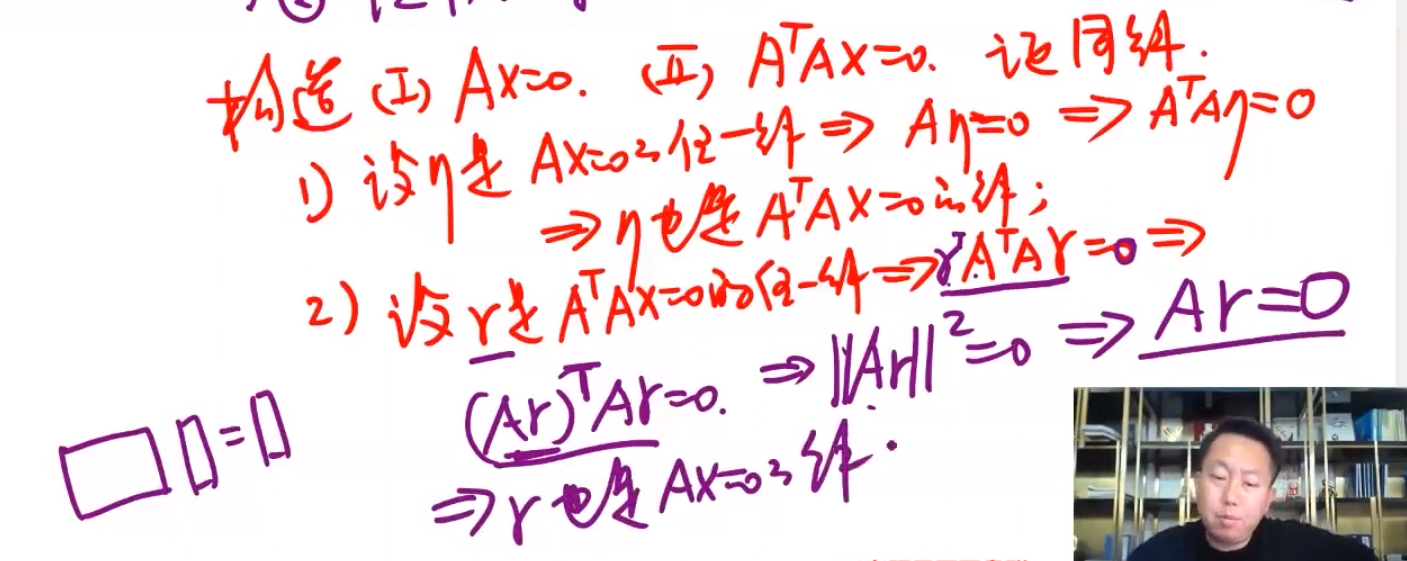 构造 (I) Ax=0. (II) AᵀAx=0. 证同解.
1) 设η是 Ax=0之任一解 ⇒ Aη=0 ⇒ AᵀAη=0
⇒ η也是 AᵀAx=0的解;
2) 设r是 AᵀAx=0的任一解 ⇒ rᵀAᵀAr=0 ⇒
(Ar)ᵀAr=0. ⇒ ||Ar||²=0 ⇒ Ar=0
⇒ r也是 Ax=0之解.